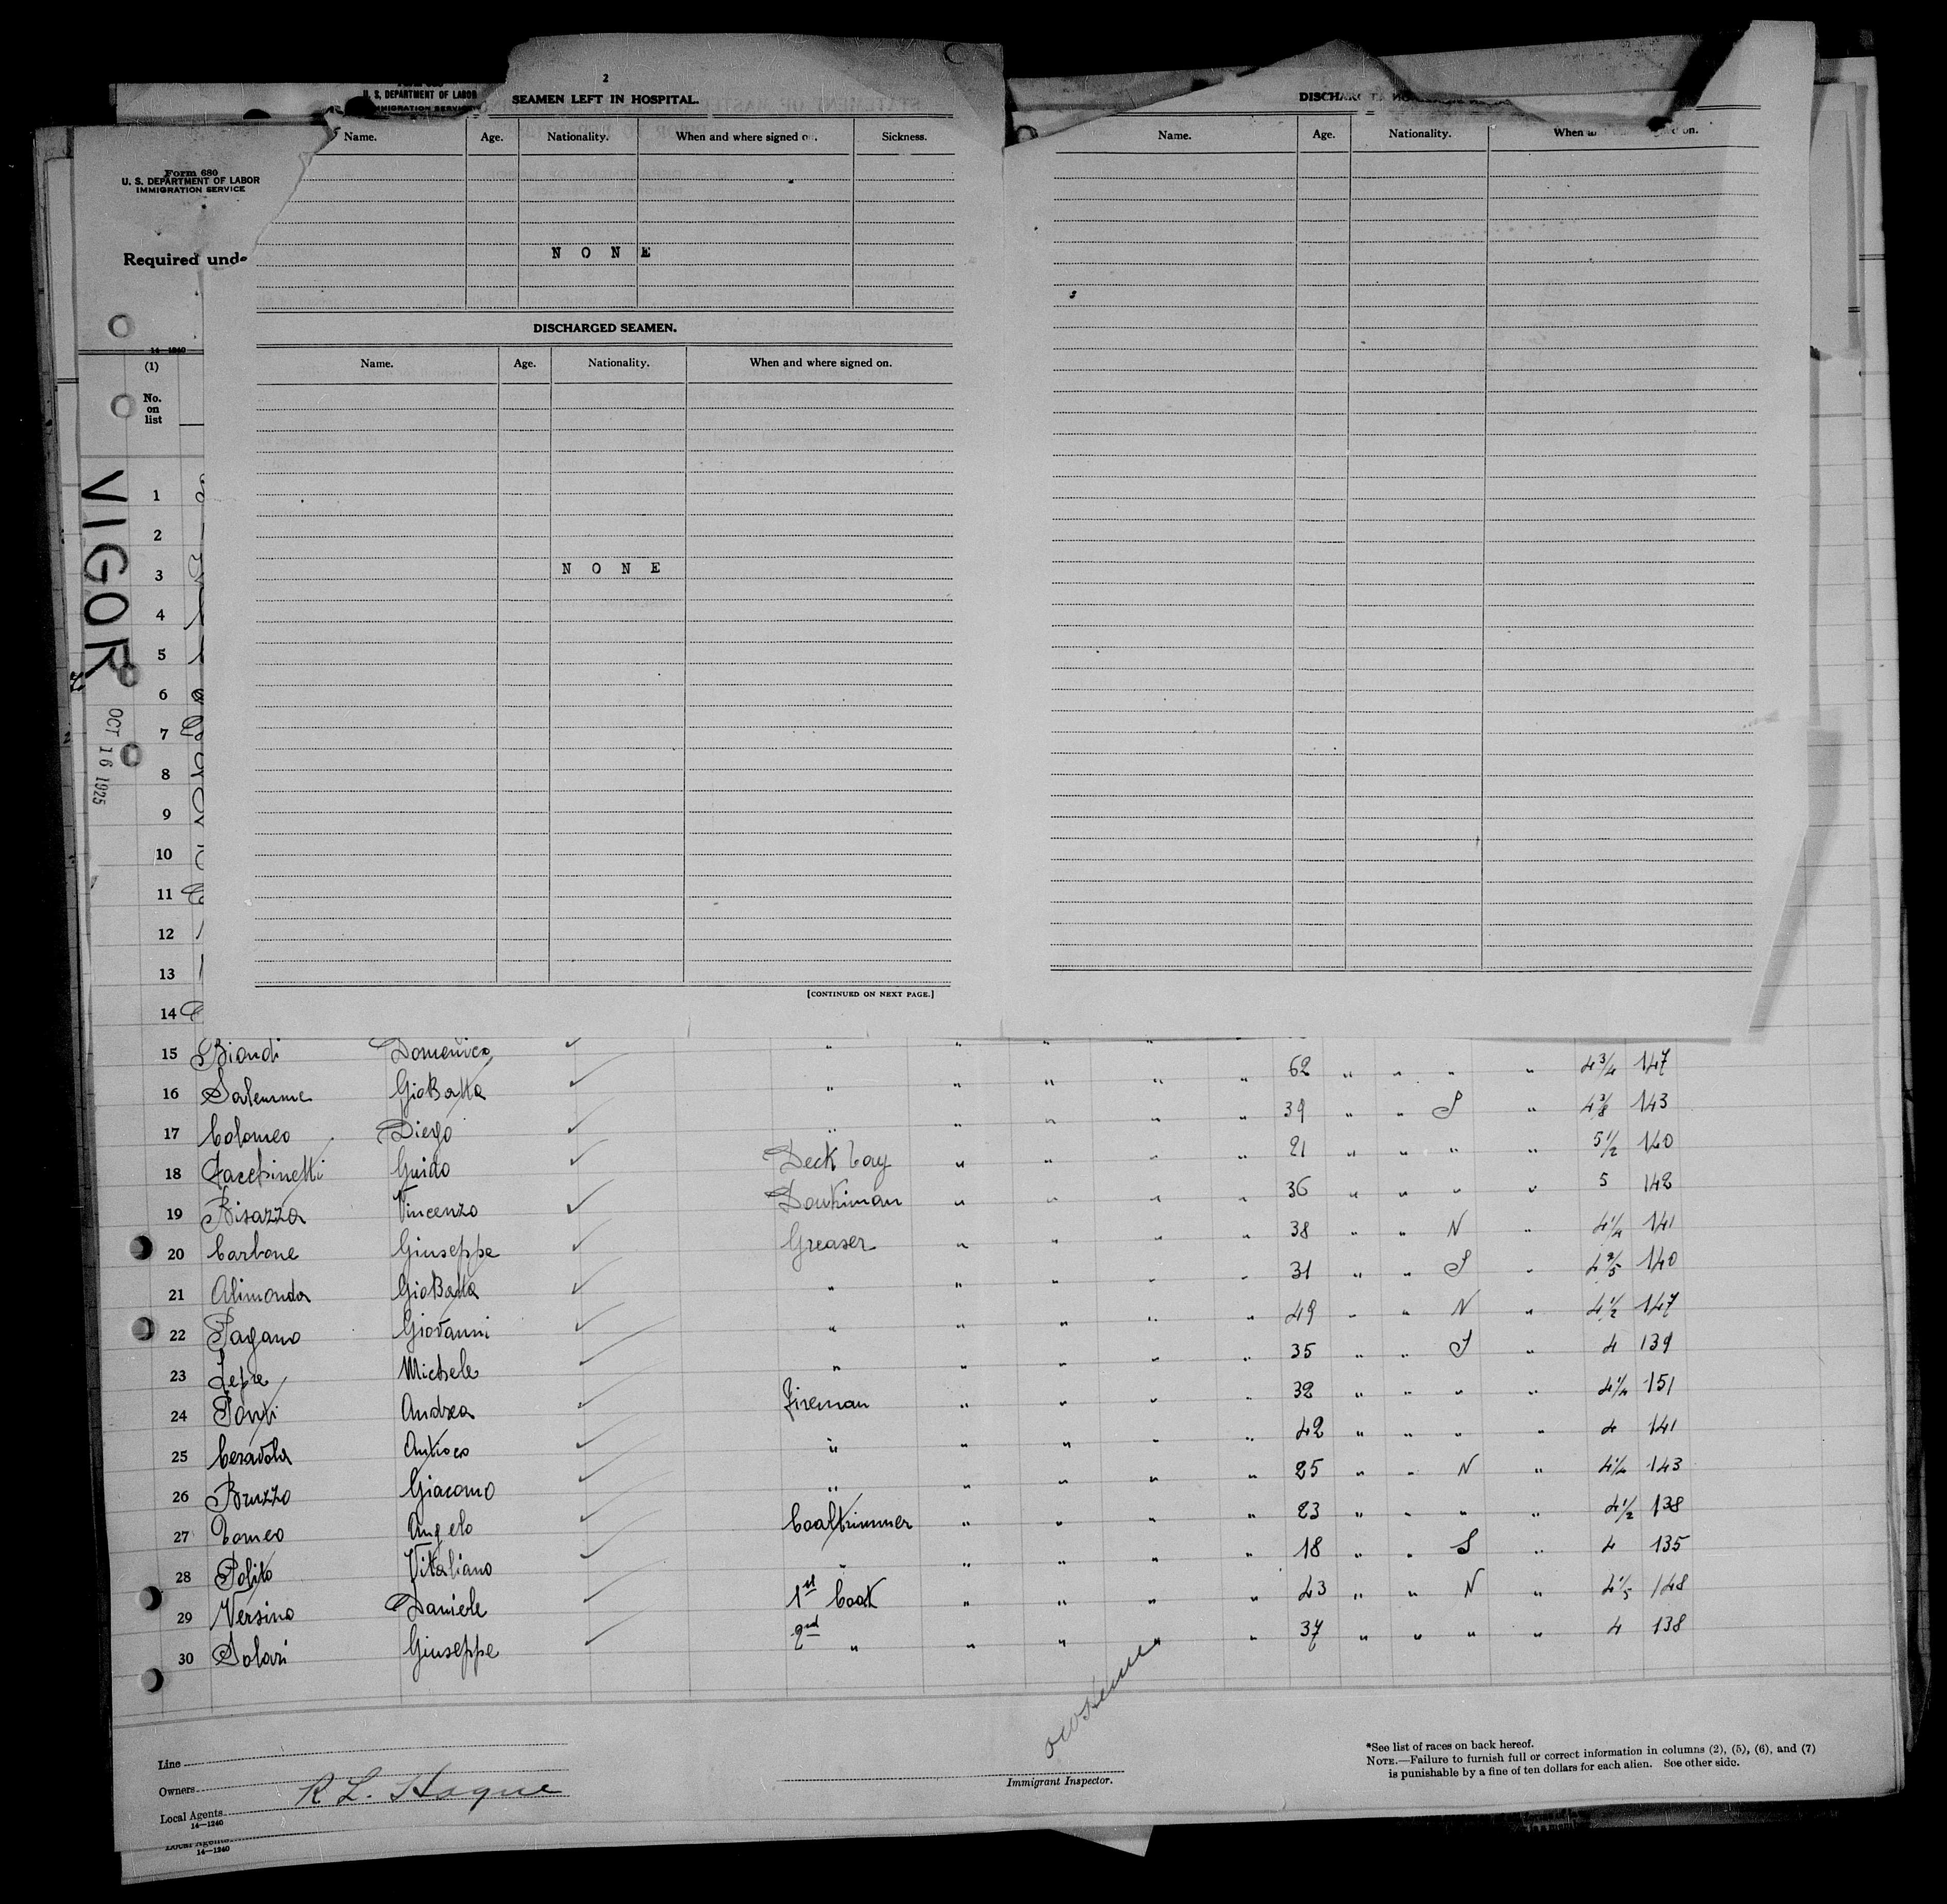 2
U. S. DEPARTMENT OF LABOR
IMMIGRATION SERVICE
SEAMEN LEFT IN HOSPITAL.
Name. Age. Nationality. When and where signed on. Sickness.
NONE
DISCHARGED SEAMEN.
Name. Age. Nationality. When and where signed on.
NONE
[CONTINUED ON NEXT PAGE.]
Name. Age. Nationality. When on.
Form 680
U. S. DEPARTMENT OF LABOR
IMMIGRATION SERVICE
Required unde
14—1240
(1)
No.
on
list
VIGOR
OCT 16 1925
1
2
3
4
5
6
7
8
9
10
11
12
13
14
15 Biondi Domenico "
16 Salemme GioBatta " " " " " 62 " " " " 4 3/4 147
17 Colomeo Diego " " " " " 39 " " S " 4 3/8 143
18 Facchinetti Guido Deck boy " " " " 21 " " " " 5 1/2 140
19 Bisazza Vincenzo Donkiman " " " " 36 " " " " 5 142
20 Carbone Giuseppe Greaser " " " " 38 " " N " 4 1/4 141
21 Alimonda GioBatta " " " " " 31 " " S " 140
22 Pagano Giovanni " " " " " 49 " " N " 4 1/2 147
23 Lepre Michele " " " " " 35 " " S " 4 139
24 Ponti Andrea Fireman " " " " 32 " " " " 4 1/4 151
25 Ceravola Antioco " " " " " 42 " " " " 4 141
26 Bruzzo Giacomo " " " " " 25 " " N " 4 1/4 143
27 Tomeo Angelo Coaltrimmer " " " " 23 " " " " 4 1/2 138
28 Polito Vitaliano " " " " " 18 " " S " 4 135
29 Versino Daniele 1st Cook " " " " 43 " " N " 4 1/5 148
30 Solari Giuseppe 2nd " " " " " 37 " " " " 4 138
Line
Owners
Local Agents
R L. Hogue
14—1240
Immigrant Inspector.
*See list of races on back hereof.
NOTE.—Failure to furnish full or correct information in columns (2), (5), (6), and (7)
is punishable by a fine of ten dollars for each alien. See other side.
Local Agents
14—1240